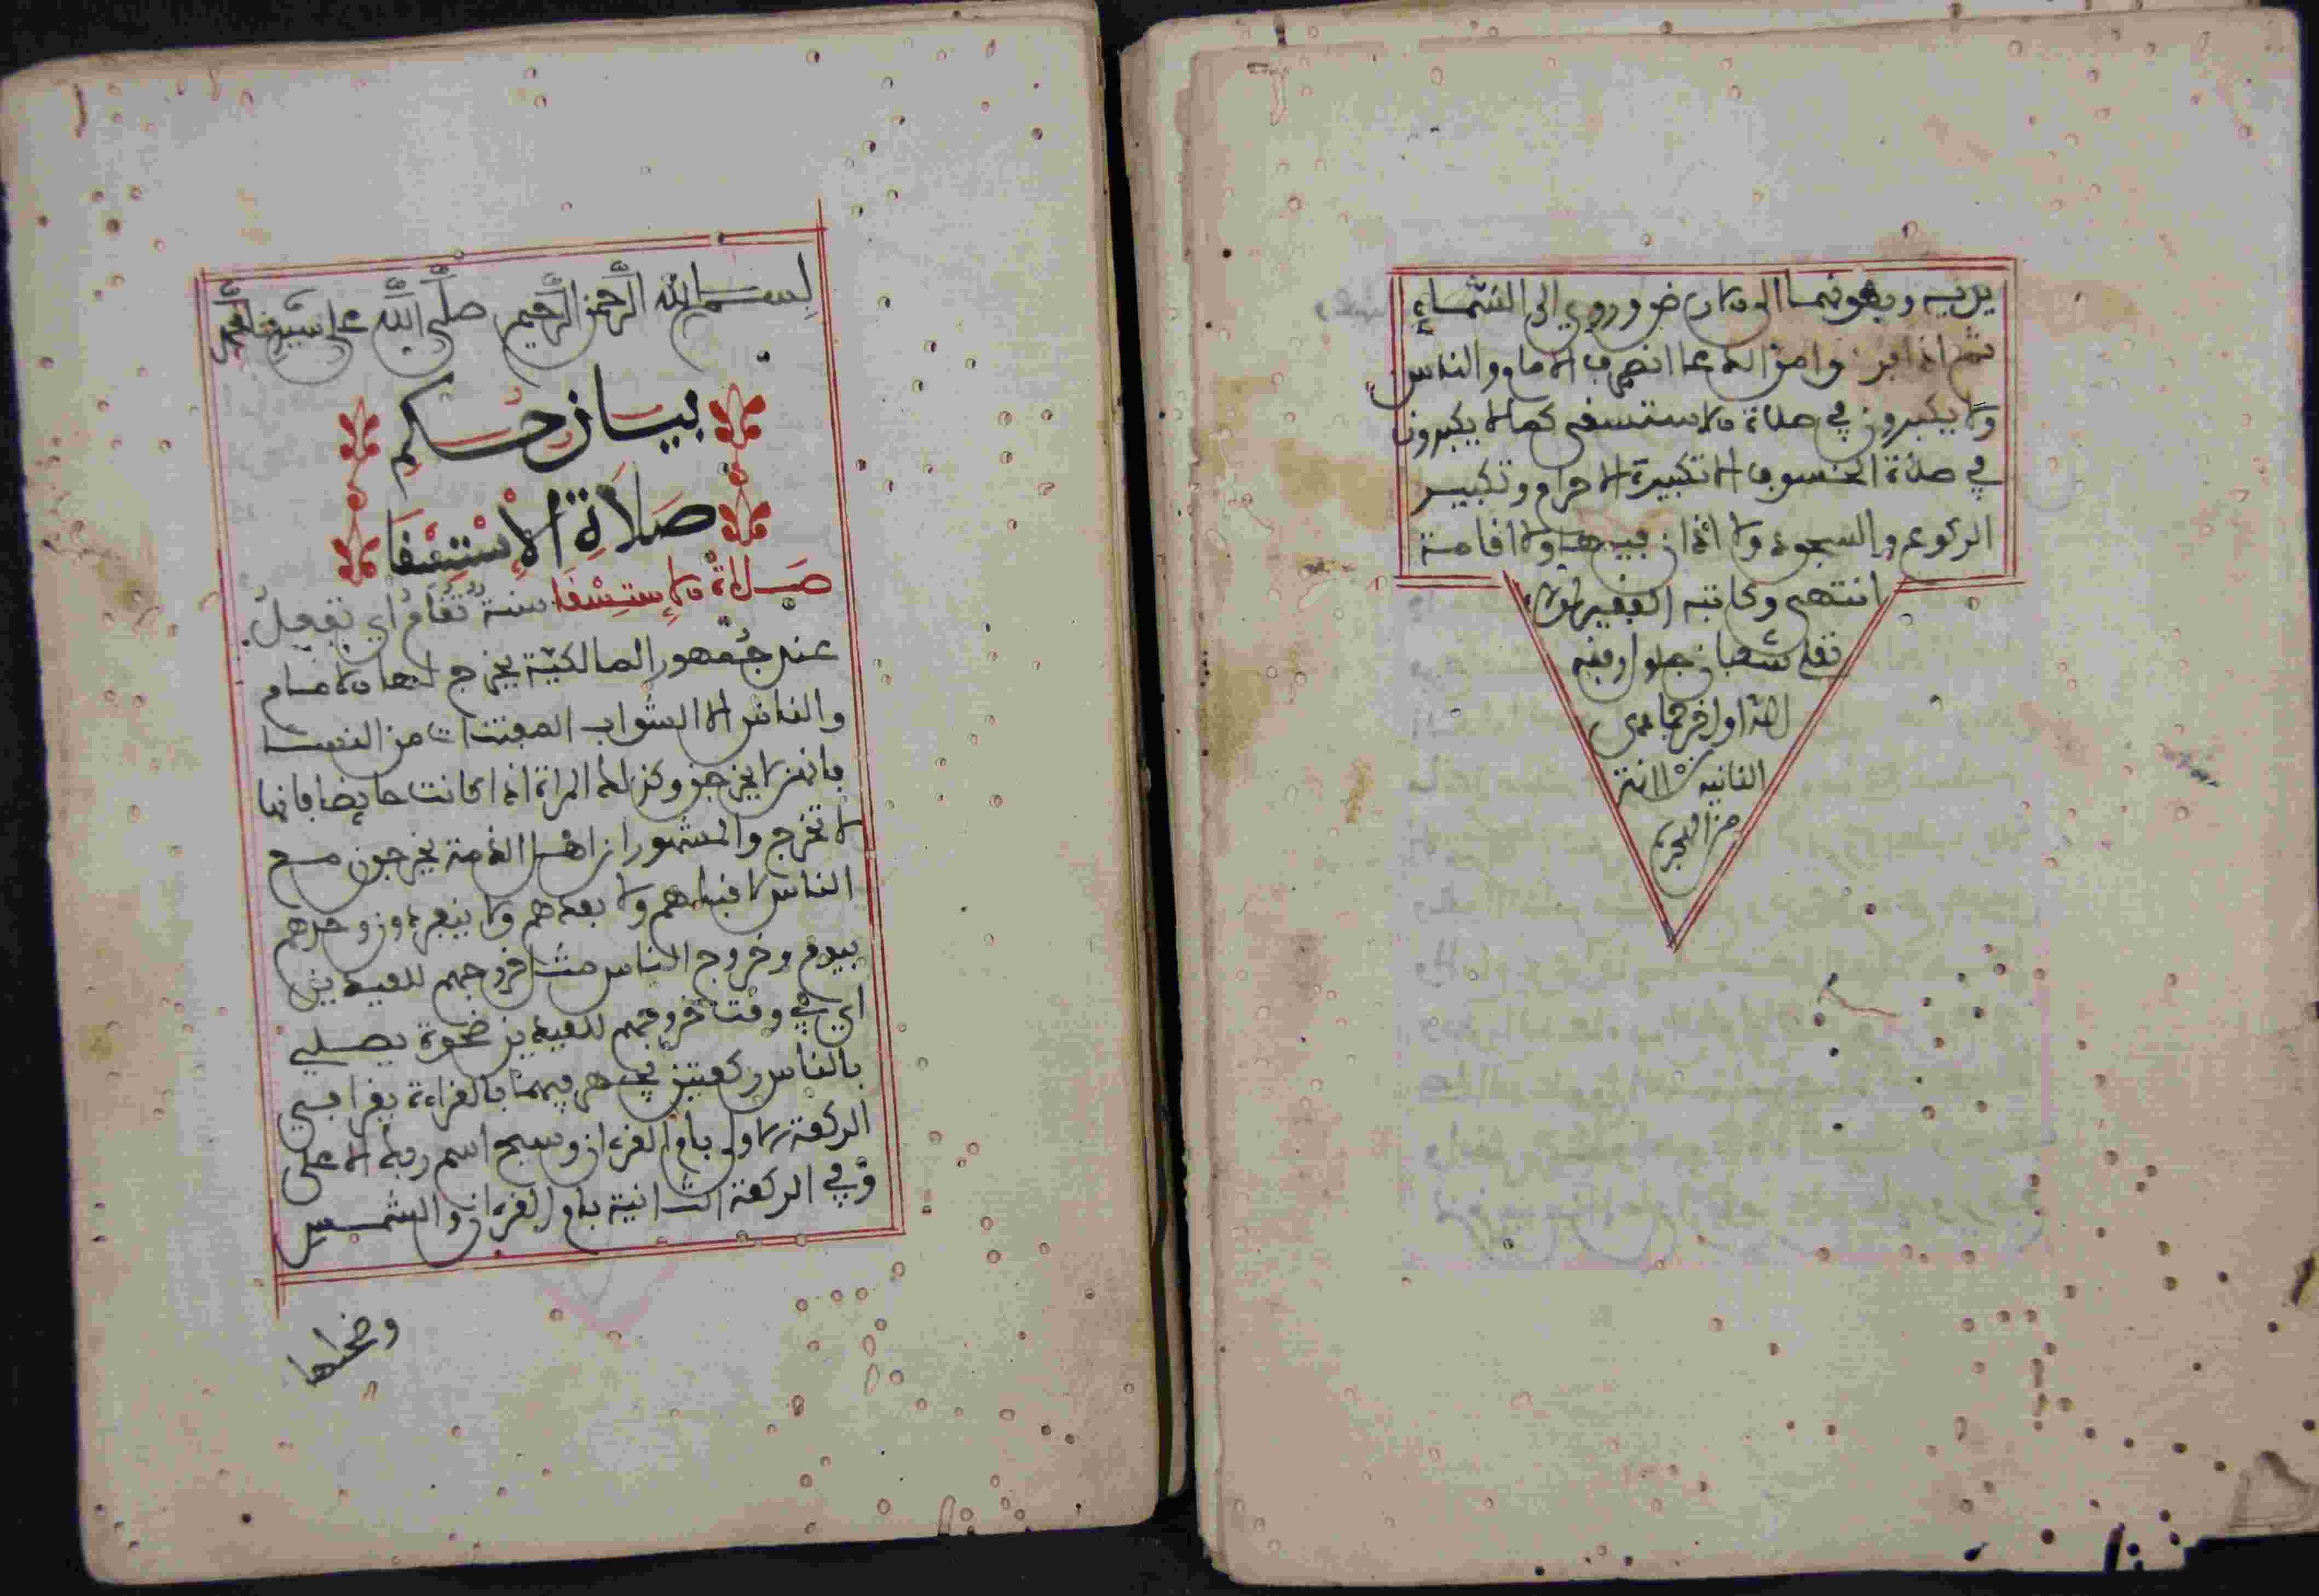 يديه ويبطونهما الى الارض وروي الى السماء
ثم اذا فرغوا من الدعاء انصرف الامام والناس
ولا يكبرون في صلاة الاستسفى كما لا يكبرون
في صلاة الخسوف الا تكبيرة الاحرام وتكبير
الركوع والسجود ولا اذان فيها ولا اقامة
انتهى وكاتبه الفقير لمولاه
شعبان
الله اول جمادى
الثانية سنة
من الهجرة
بسم الله الرحمن الرحيم صلى الله على سيدنا محمد
بيان حكم
صلاة الإستسفا
صلاة الإستسفا سنة تقام أي تفعل
عند جمهور المالكية يخرج لها الامام
والناس الا الشواب المفتنات من النسا
فانهن لا يخرجن وكذلك المراة اذا كانت حايضا فانها
لا تخرج والمشهور ان اهل الذمة يخرجون مع
الناس لا قبلهم ولا بعدهم ولا ينفردون وحدهم
بيوم وخروج الناس مثل خروجهم للعيدين
اي في وقت خروجهم للعيدين ضحوة يصلي
بالناس ركعتين يجهر فيهما بالقراءة يقرا في
الركعة الاولى بام القرءان وسبح اسم ربك الاعلى
وفي الركعة الثانية بام القرءان والشمس
وضحاها